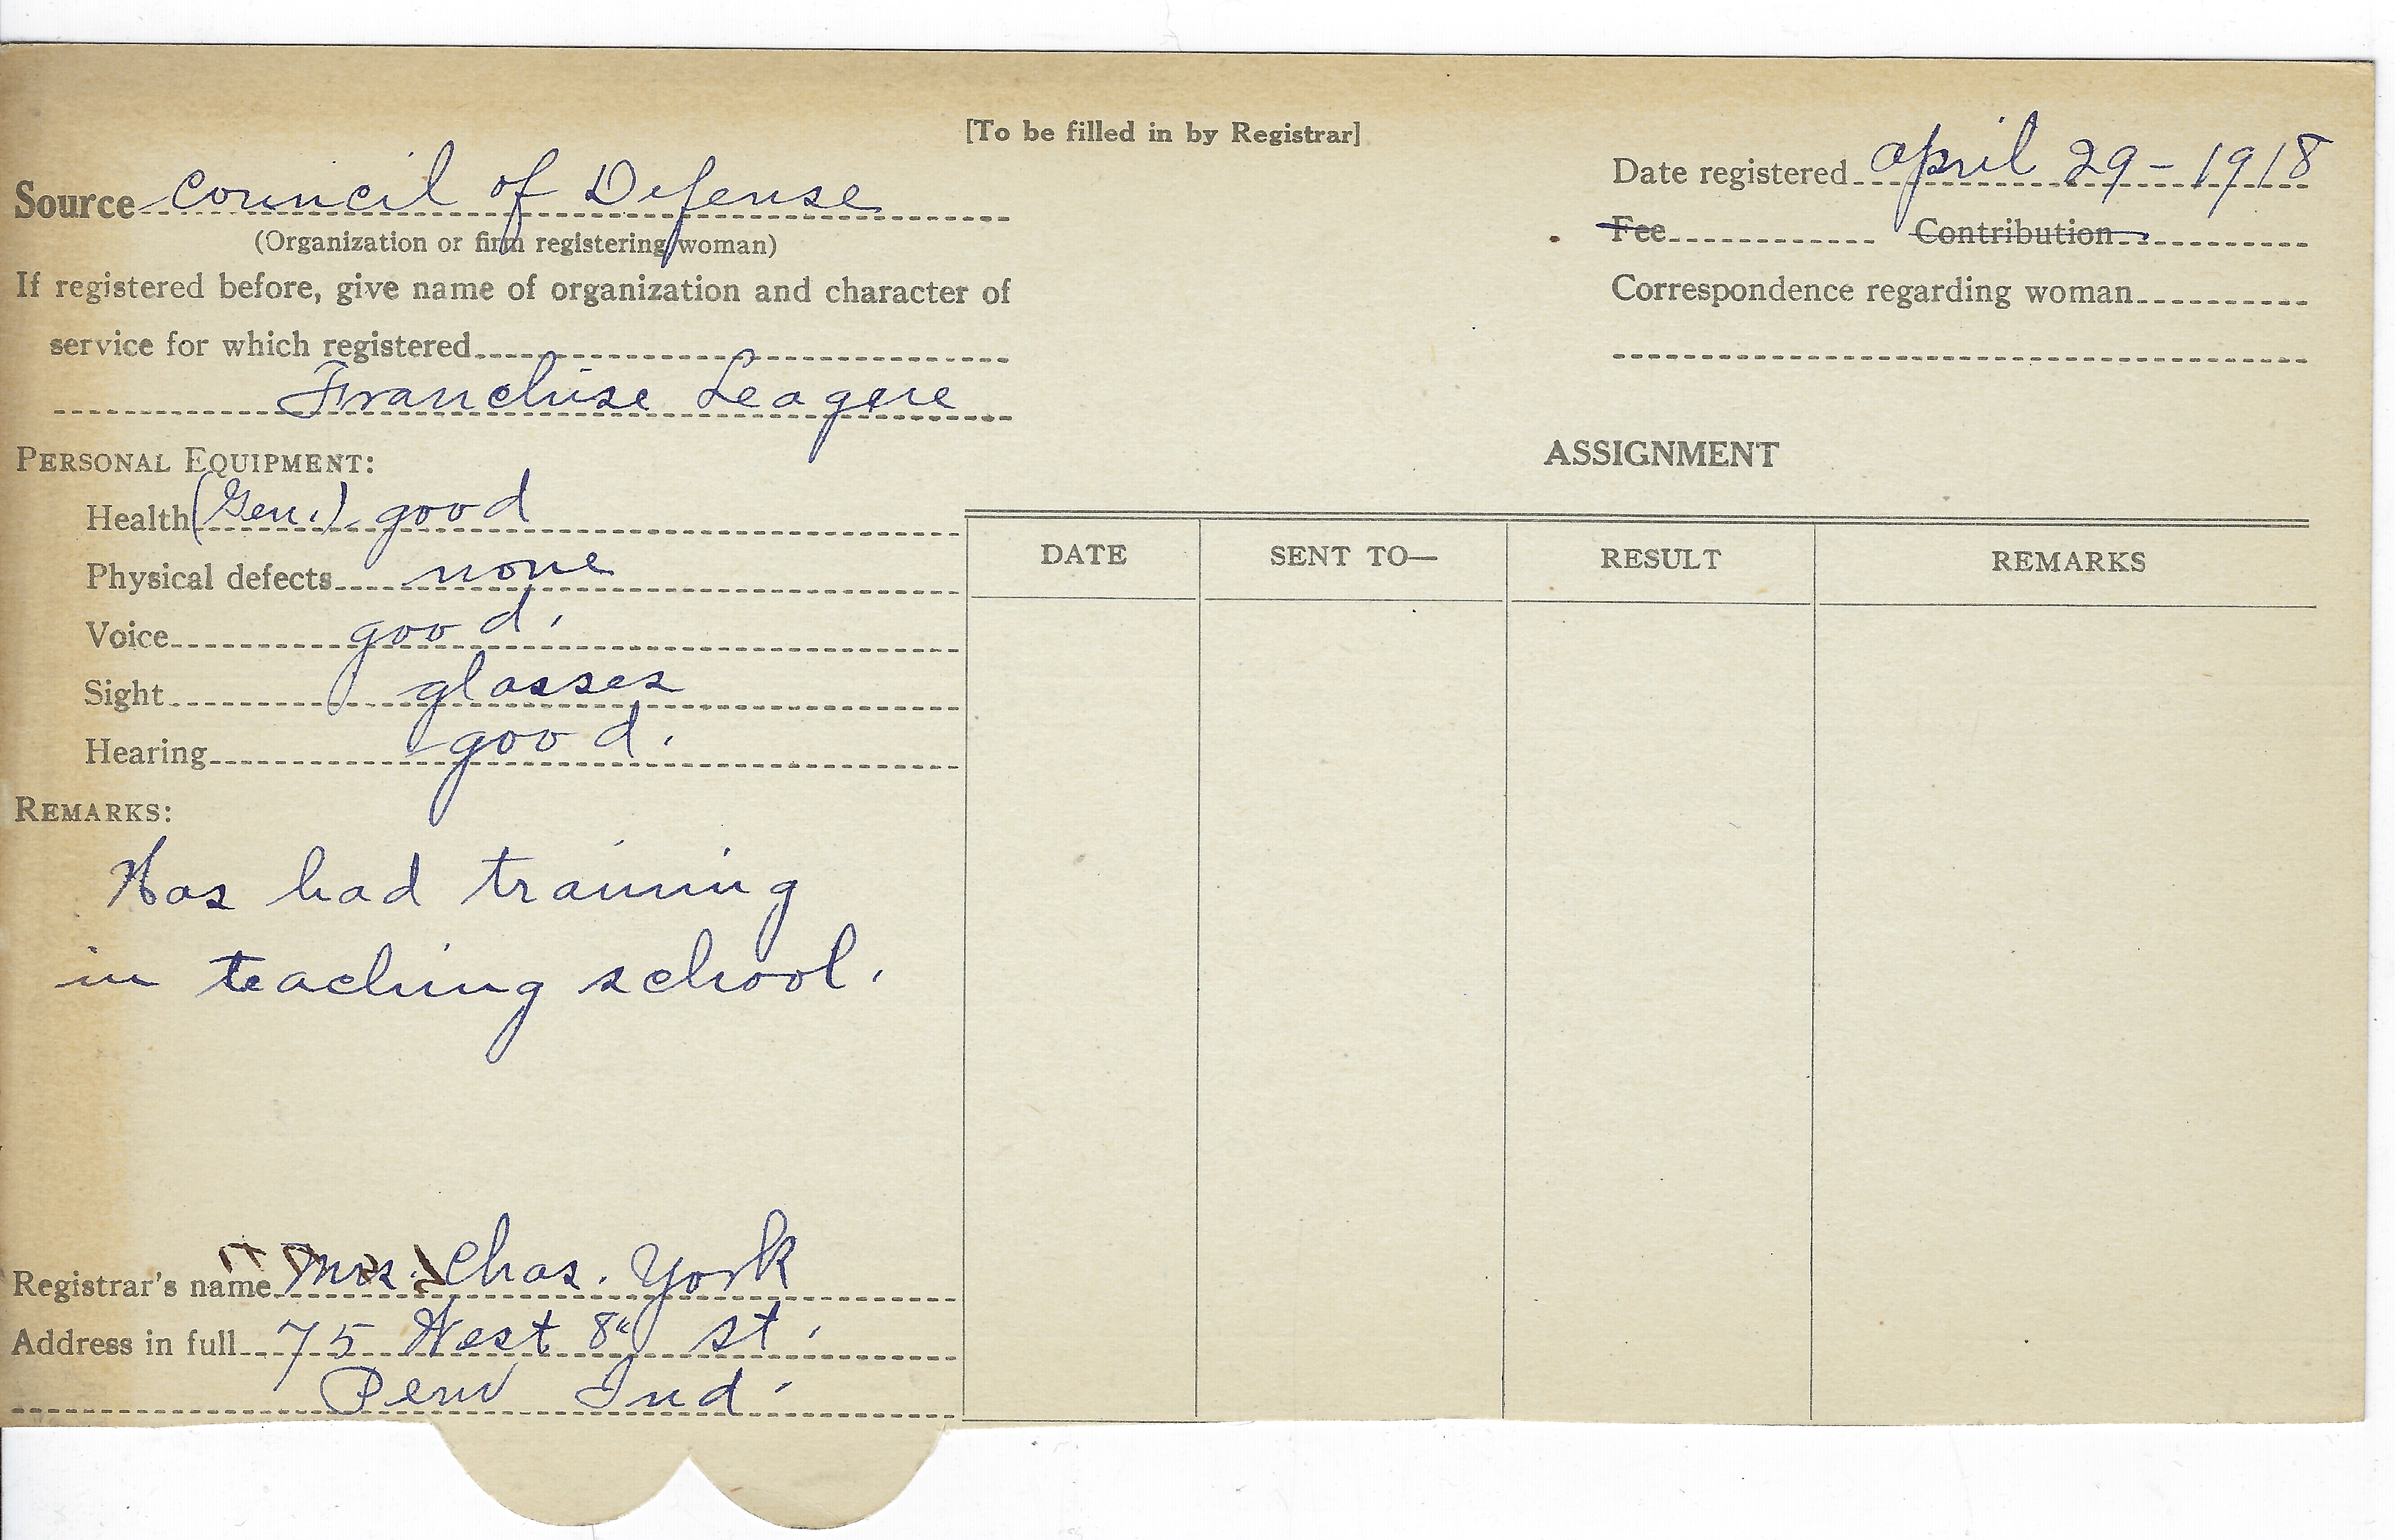 [To be filled in by Registrar]
Source Council of Defense
(Organization or firm registering woman)
If registered before, give name of organization and character of
service for which registered
Franchise League
PERSONAL EQUIPMENT:
Health (Gen.) good
Physical defects none
Voice good.
Sight glasses
Hearing good.
REMARKS:
Has had training
in teaching school.
Registrar's name Mrs. Chas. York
Address in full 75 West 8" st.
Peru Ind.
Date registered April 29-1918
Fee Contribution
Correspondence regarding woman
ASSIGNMENT
DATE SENT TO— RESULT REMARKS